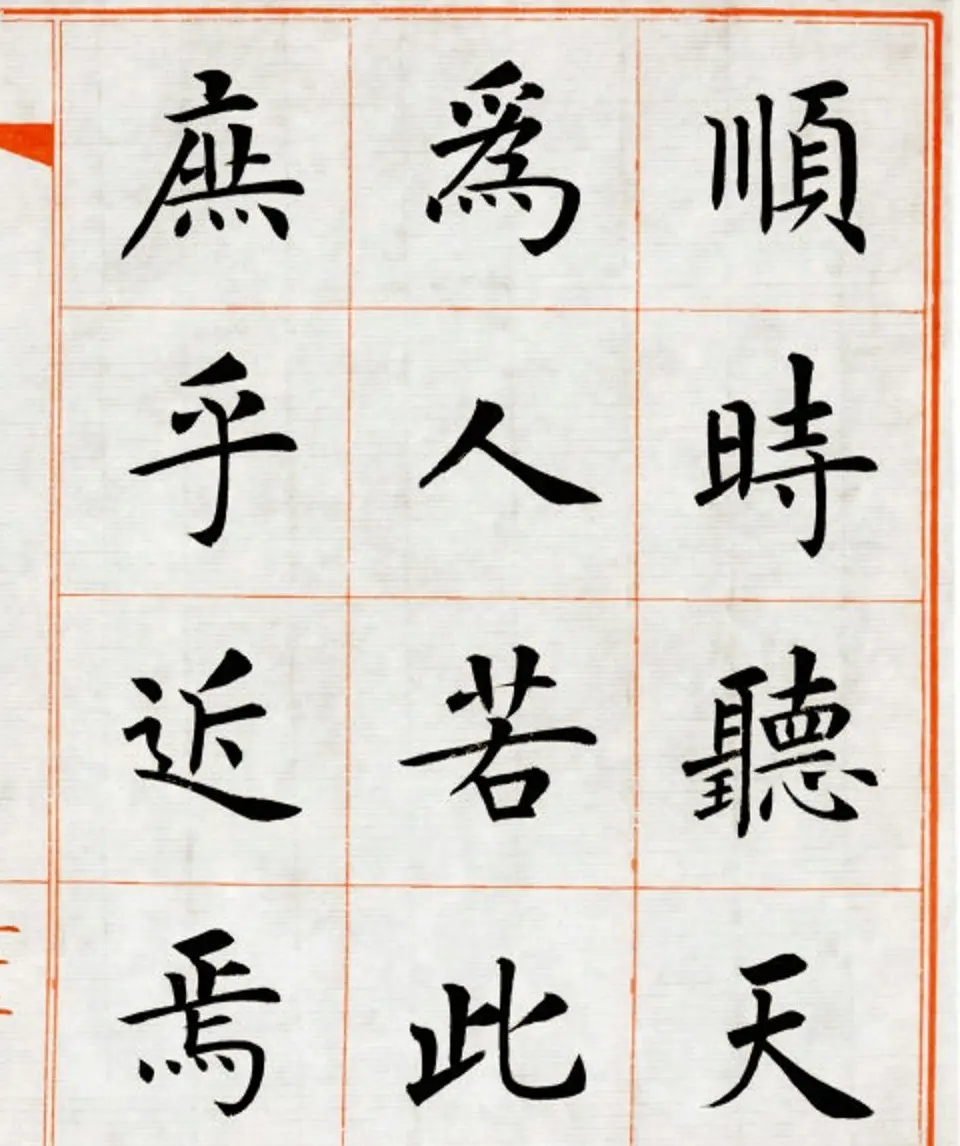 順時聽天
為人若此
庶乎近焉